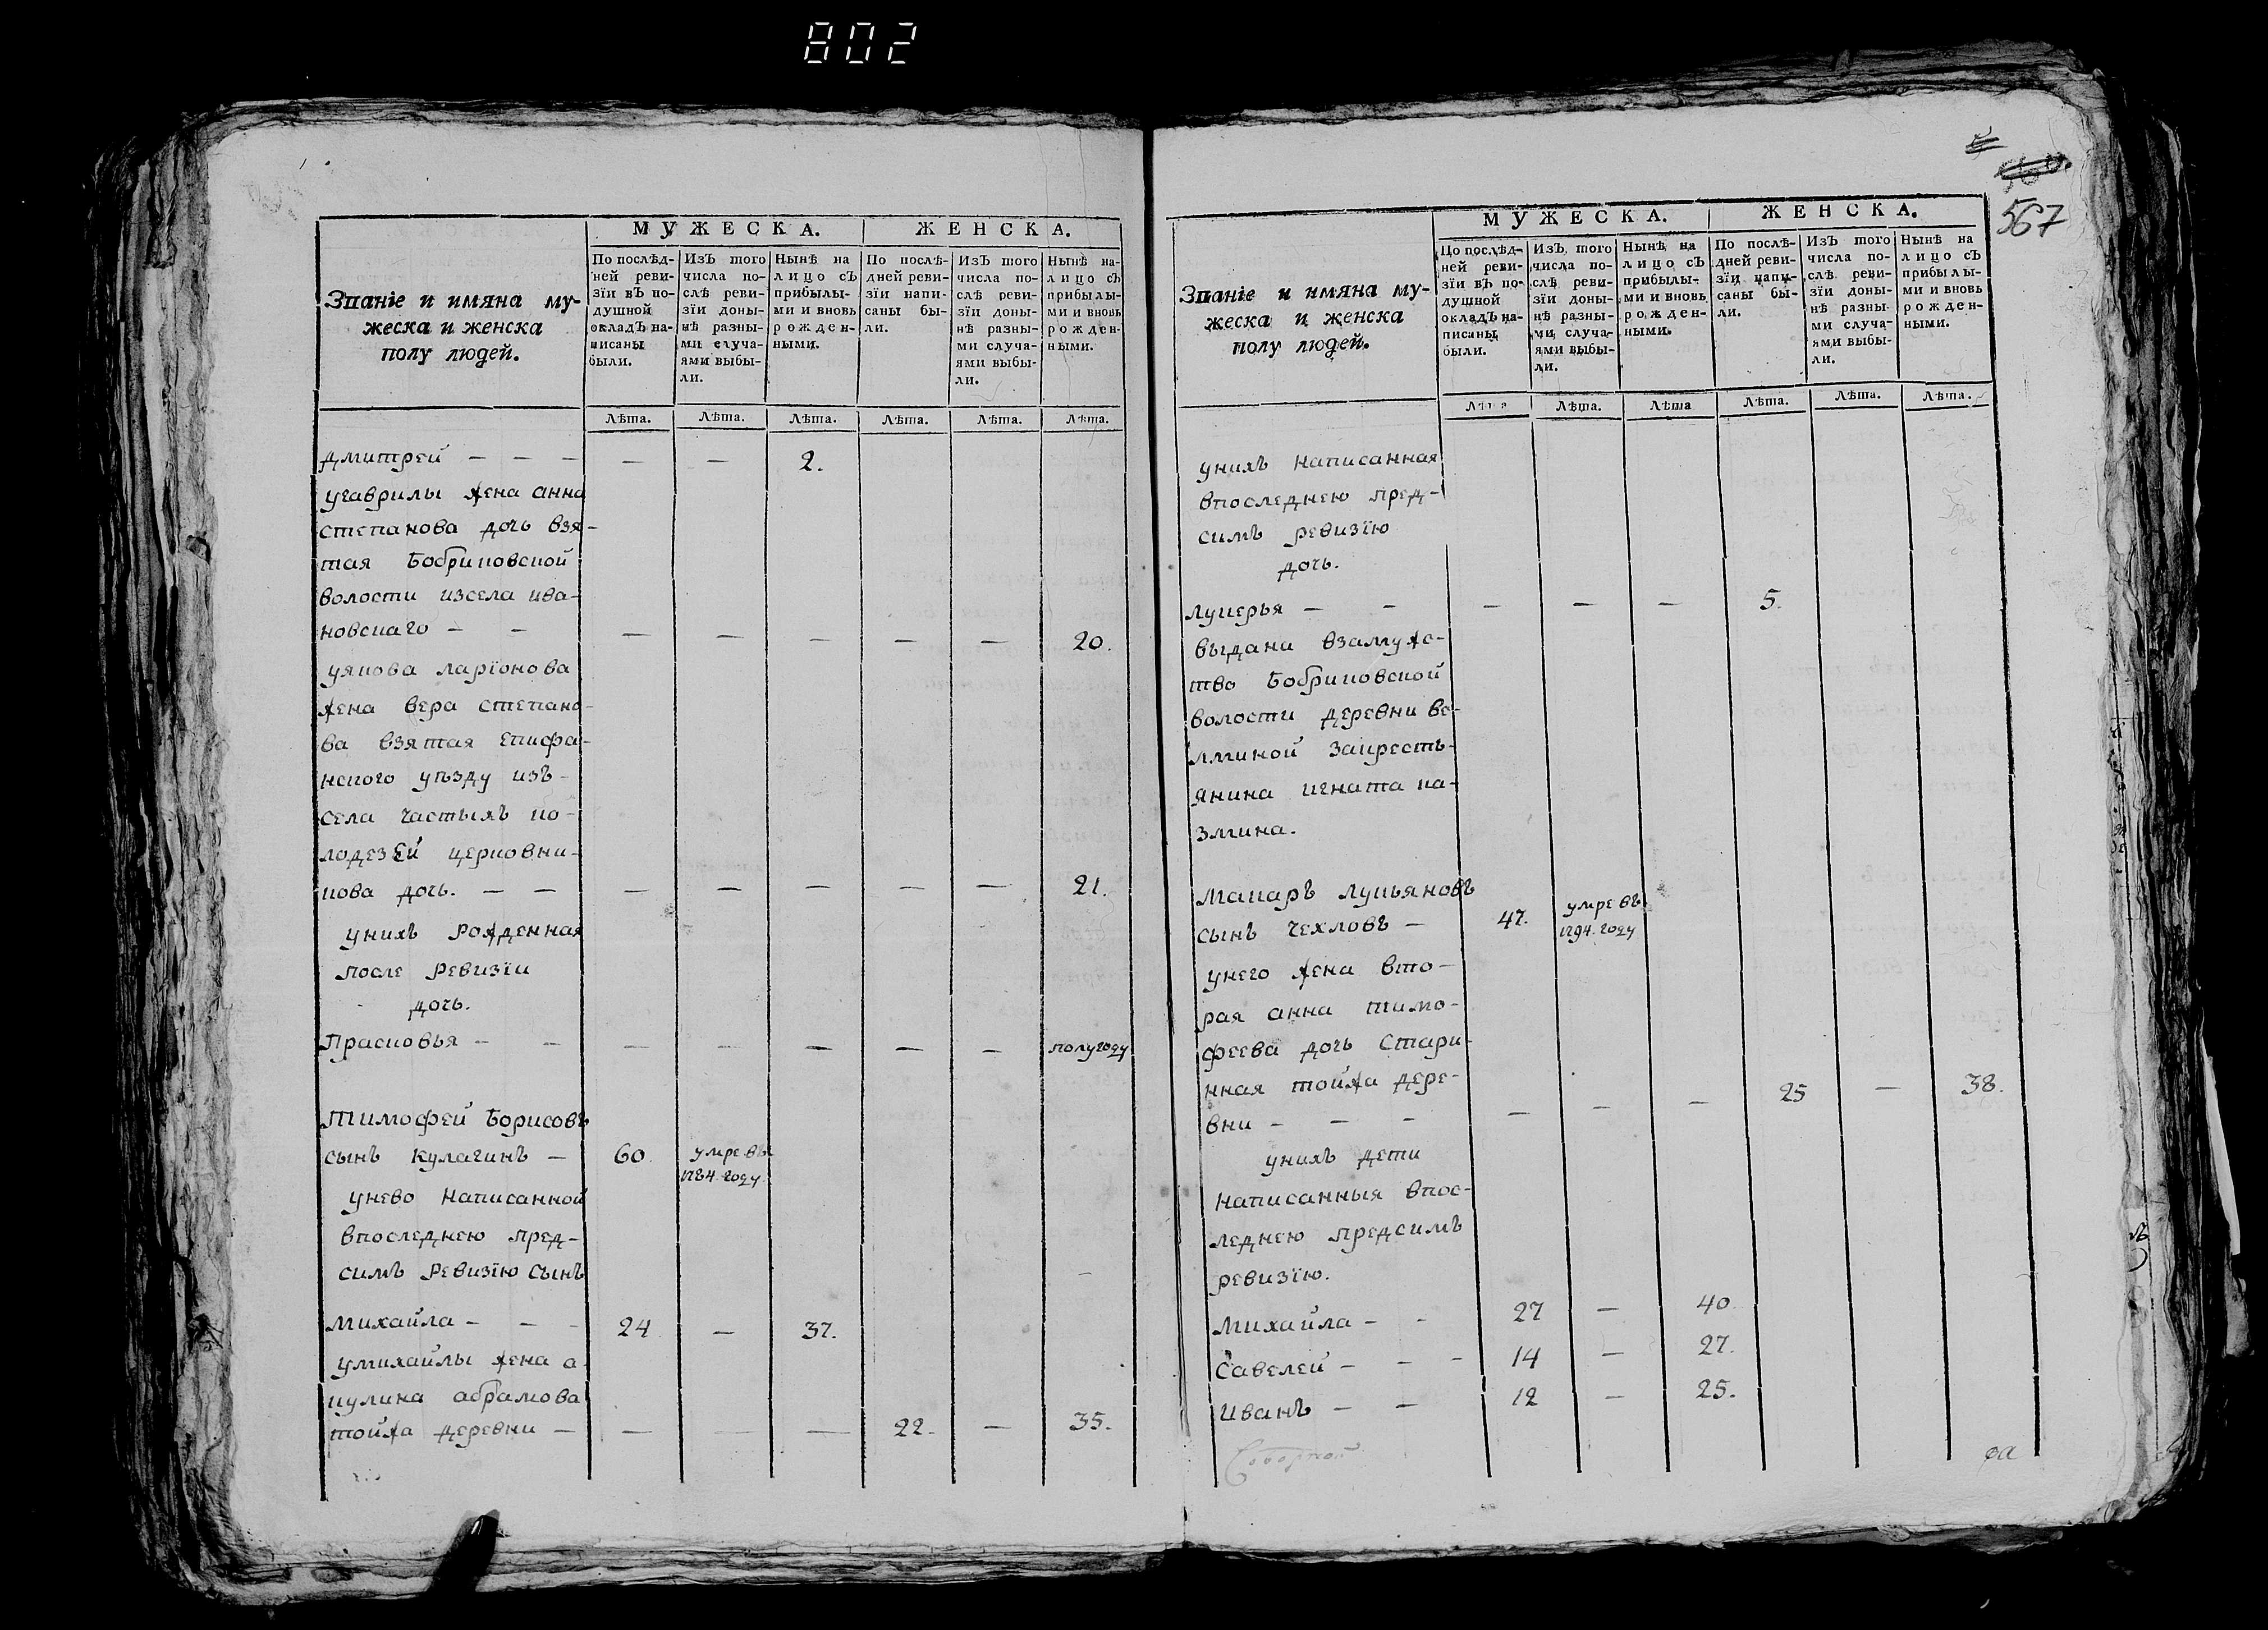 802
МУЖЕСКА. ЖЕНСКА.
Званіе и имяна му-
жеска и женска
полу людей.
По послѣд-
ней реви-
зїи въ по-
душной
окладъ на-
писаны
были.
Изъ того
числа по-
слѣ реви-
зїи доны-
нѣ разны-
ми случа-
ями выбы-
ли.
Нынѣ на
лицо съ
прибылы-
ми и вновь
рожден-
ными.
По послѣ-
дней реви-
зїи напи-
саны бы-
ли.
Изъ того
числа по-
слѣ реви-
зїи доны-
нѣ разны-
ми случа-
ями выбы-
ли.
Нынѣ на-
лицо съ
прибылы-
ми и вновь
рожден-
ными.
Лѣта. Лѣта. Лѣта. Лѣта. Лѣта. Лѣта.
Дмитрей - - - — — 2.
угаврилы жена анна
степанова дочь взя-
тая бобриковской
волости изсела ива-
новскаго - - — — — — — 20.
уякова ларїонова
жена вера степано-
ва взятая епифа-
нского уѣзду изъ-
села частыхъ ко-
лодезей церковни-
кова дочь. - - — — — — — 21.
унихъ рожденная
после ревизїи
дочь.
Прасковья - - — — — — — полугоду
Тимофей борисовъ
сынъ кулагинъ — 60. умре въ
1784 году
унево написанной
впоследнею пред-
симъ ревизїю сынъ
михайла - - - 24 — 37.
умихайлы жена а-
кулина абрамова
тойжа деревни — — — — 22. — 35.
567
МУЖЕСКА. ЖЕНСКА.
Званіе и имяна му-
жеска и женска
полу людей.
По послѣд-
ней реви-
зїи въ по-
душной
окладъ на-
писаны
были.
Изъ того
числа по-
слѣ реви-
зїи доны-
нѣ разны-
ми случа-
ями выбы-
ли.
Нынѣ на
лицо съ
прибылы-
ми и вновь
рожден-
ными.
По послѣ-
дней реви-
зїи напи-
саны бы-
ли.
Изъ того
числа по-
слѣ реви-
зїи доны-
нѣ разны-
ми случа-
ями выбы-
ли.
Нынѣ на
лицо съ
прибылы-
ми и вновь
рожден-
ными.
Лѣта Лѣта. Лѣта Лѣта. Лѣта. Лѣта.
унихъ написанная
впоследнею пред-
симъ ревизїю
дочь.
лукерья - - — — — 5.
выдана взамуже-
тво бобриковской
волости деревни ве-
лминой закресть-
янина игната ка-
змина.
Макаръ лукьяновъ
сынъ чехловъ — 47. умре въ
1794 году
унего жена вто-
рая анна тимо-
феева дочь стари-
нная тойжа дере-
вни - - - — — — 25 — 38.
унихъ дети
написанныя впос-
леднею предсимъ
ревизїю.
михайла - - 27 — 40.
савелей - - - 14 — 27.
иванъ - - 12 — 25.